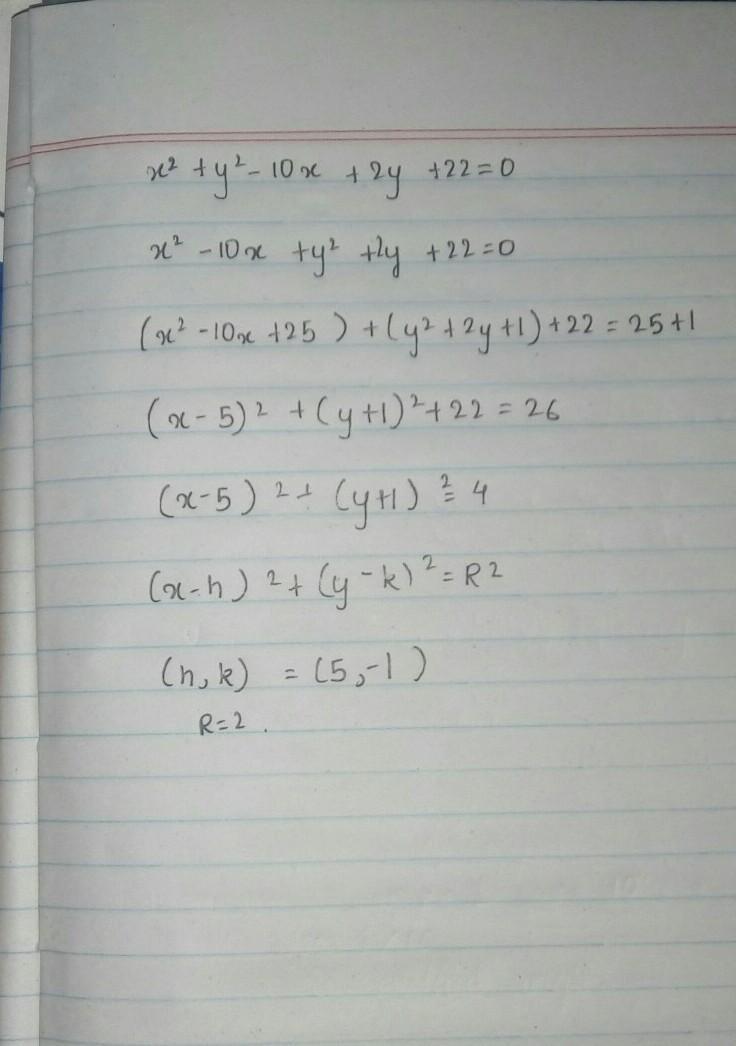 x² + y² - 10x + 2y + 22 = 0
x² - 10x + y² + 2y + 22 = 0
(x² - 10x + 25) + (y² + 2y + 1) + 22 = 25 + 1
(x - 5)² + (y + 1)² + 22 = 26
(x - 5)² + (y + 1)² = 4
(x - h)² + (y - k)² = R²
(h, k) = (5, -1)
R = 2.